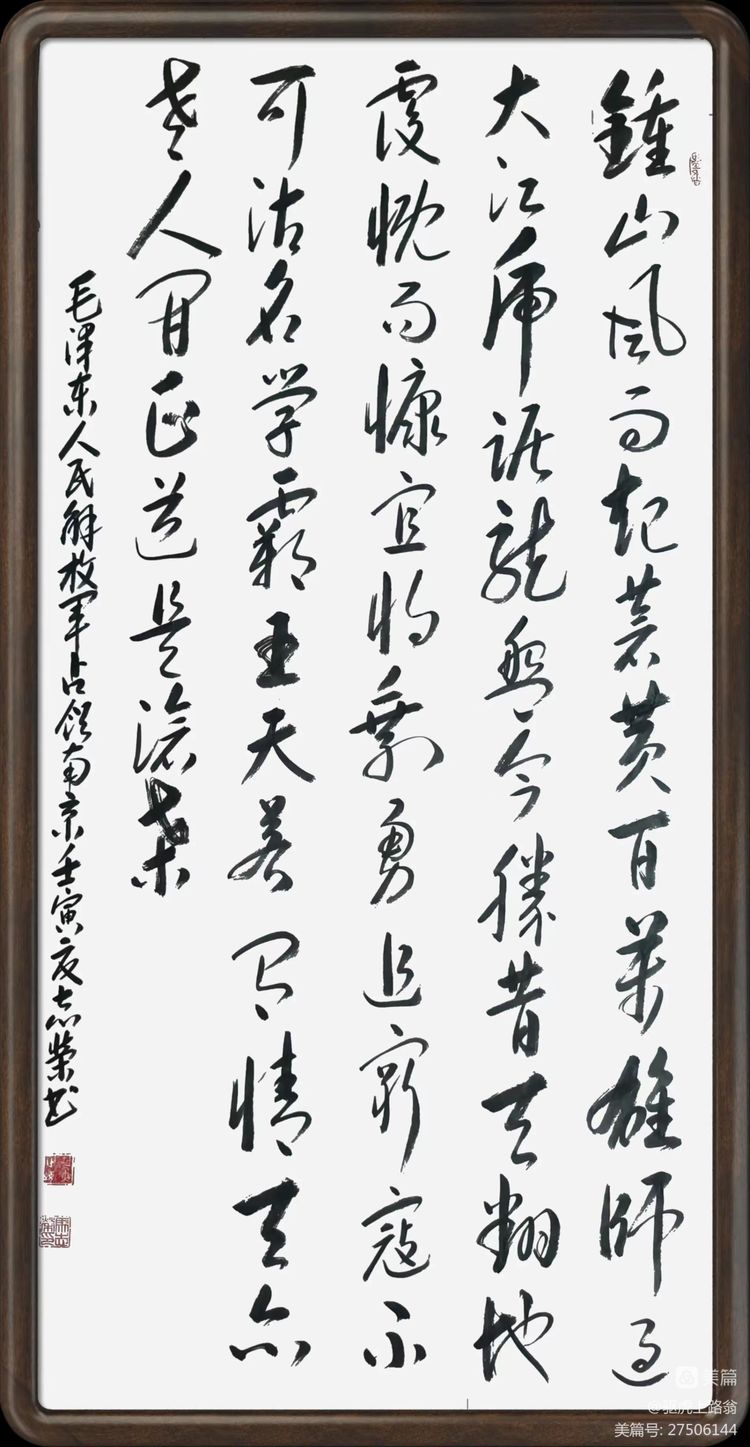 鍾山风雨起蒼黄百萬雄師过
大江虎踞龍盘今勝昔天翻地
覆慨而慷宜将剩勇追窮寇不
可沽名学霸王天若有情天亦
老人间正道是滄桑
毛泽东人民解放军占领南京壬寅夏志荣书
美篇
@驱虎上路翁
美篇号: 27506144